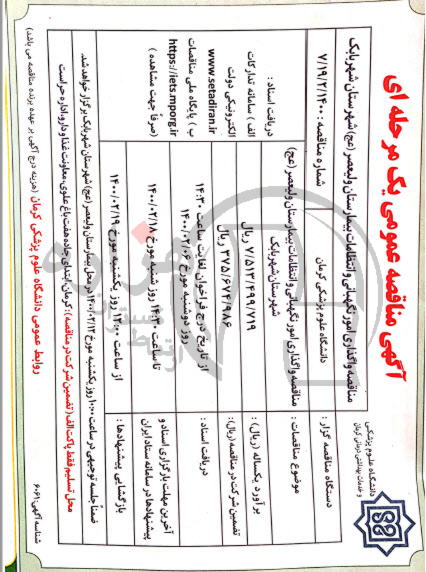 آگهی مناقصه عمومی یک مرحله ای
دانشگاه علوم پزشکی
و خدمات بهداشتی درمانی کرمان
مناقصه واگذاری امور نگهبانی و انتظامات بیمارستان ولیعصر (عج) شهرستان شهربابک
دستگاه مناقصه گزار :
دانشگاه علوم پزشکی کرمان
شماره مناقصه : ۷/۱۹/۲/۱۴۰۰
موضوع مناقصات :
مناقصه واگذاری امور نگهبانی و انتظامات بیمارستان ولیعصر (عج)
شهرستان شهربابک
برآورد یکساله (ریال) :
۷/۵۱۳/۴۹۹/۷۱۹ ریال
تضمین شرکت در مناقصه (ریال):
۳۷۵/۶۷۴/۹۸۶ ریال
دریافت اسناد :
از تاریخ درج فراخوان لغایت ساعت ۱۴:۳۰
روز دوشنبه مورخ ۱۴۰۰/۰۲/۰۶
آخرین مهلت بارگزاری اسناد و
پیشنهادها در سامانه ستاد ایران
تا ساعت ۱۴:۳۰ روز شنبه مورخ ۱۴۰۰/۰۲/۱۸
بازگشایی پیشنهادها :
از ساعت ۱۲:۰۰ روز یکشنبه مورخ ۱۴۰۰/۰۲/۱۹
دریافت اسناد :
الف ) سامانه تدارکات
الکترونیکی دولت
www.setadiran.ir
ب ) پایگاه ملی مناقصات
https://iets.mporg.ir
(صرفاً جهت مشاهده )
ضمناً جلسه توجیهی در ساعت ۱۰:۰۰ روز یکشنبه مورخ ۱۴۰۰/۰۲/۱۲ در محل بیمارستان ولیعصر (عج) شهرستان شهربابک برگزار خواهد شد.
محل تسلیم فقط پاکت الف ( تضمین شرکت در مناقصه) : کرمان، ابتدای جاده هفت باغ علوی، معاونت غذا و دارو، اداره حراست
شناسه آگهی: ۶۰۶۱
روابط عمومی دانشگاه علوم پزشکی کرمان (هزینه درج آگهی بر عهده برنده مناقصه می باشد)